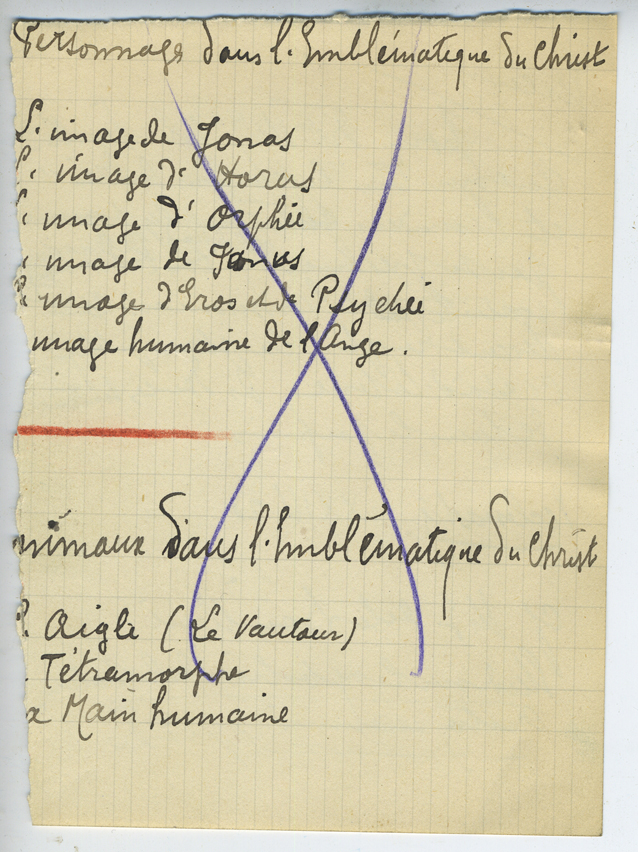 Personnage dans l'Emblématique du Christ
L'image de Jonas
L'image d' Horus
L'image d' Orphée
image de Janus
L'image d'Eros et de Psychéé
image humaine de l'Ange.
nimaux dans l'Emblématique du Christ
L'Aigle (Le Vautour)
Tétramorphe
Main humaine